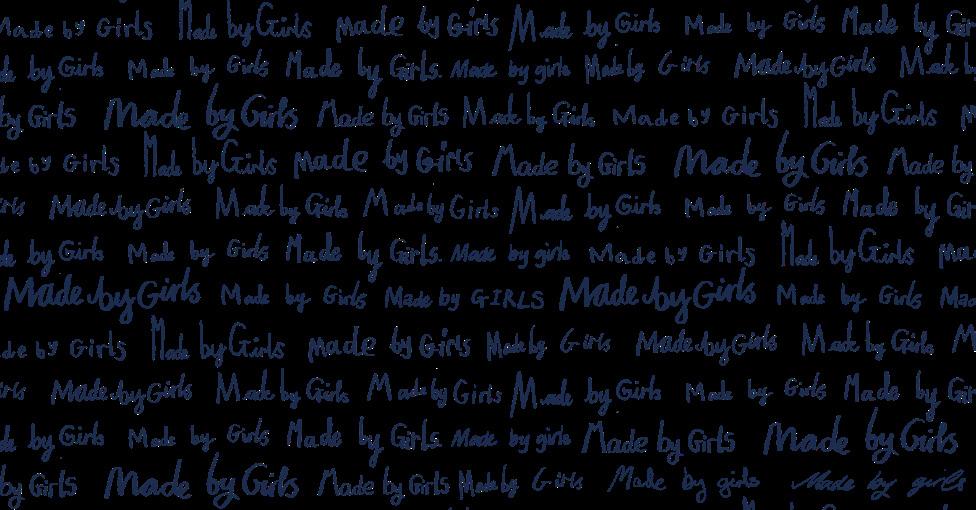 Made by Girls Made by Girls Made by Girls Made by Girls Made by Girls Made by
by Girls Made by Girls Made by Girls. Made by girls Made by Girls Made by Girls Made
by Girls Made by Girls Made by Girls Made by Girls Made by Girls Made by Girls
by Girls Made by Girls Made by Girls Made by Girls Made by Girls Made by
Made by Girls Made by Girls Made by Girls Made by Girls Made by Girls Made by
by Girls Made by Girls Made by Girls. Made by girls Made by Girls Made by Girls
Made by Girls Made by Girls Made by GIRLS Made by Girls Made by Girls
by Girls Made by Girls Made by Girls Made by Girls Made by Girls Made by Girls
Made by Girls Made by Girls Made by Girls Made by Girls Made by Girls Made by
by Girls Made by Girls Made by Girls. Made by girls Made by Girls Made by Girls
by Girls Made by Girls Made by Girls Made by Girls Made by girls Made by girls